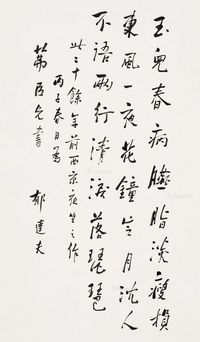 玉兒春病臙脂淡瘦損
東風一夜花鐘定月沈人
不語兩行清淚落琵琶
此二十餘年前西京夜坐之作
丙子春日為
臣兄書 郁達夫